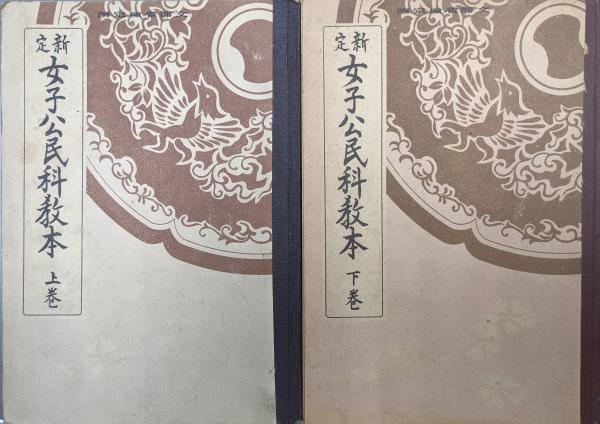 新定
女子公民科教本
上巻
新定
女子公民科教本
下巻